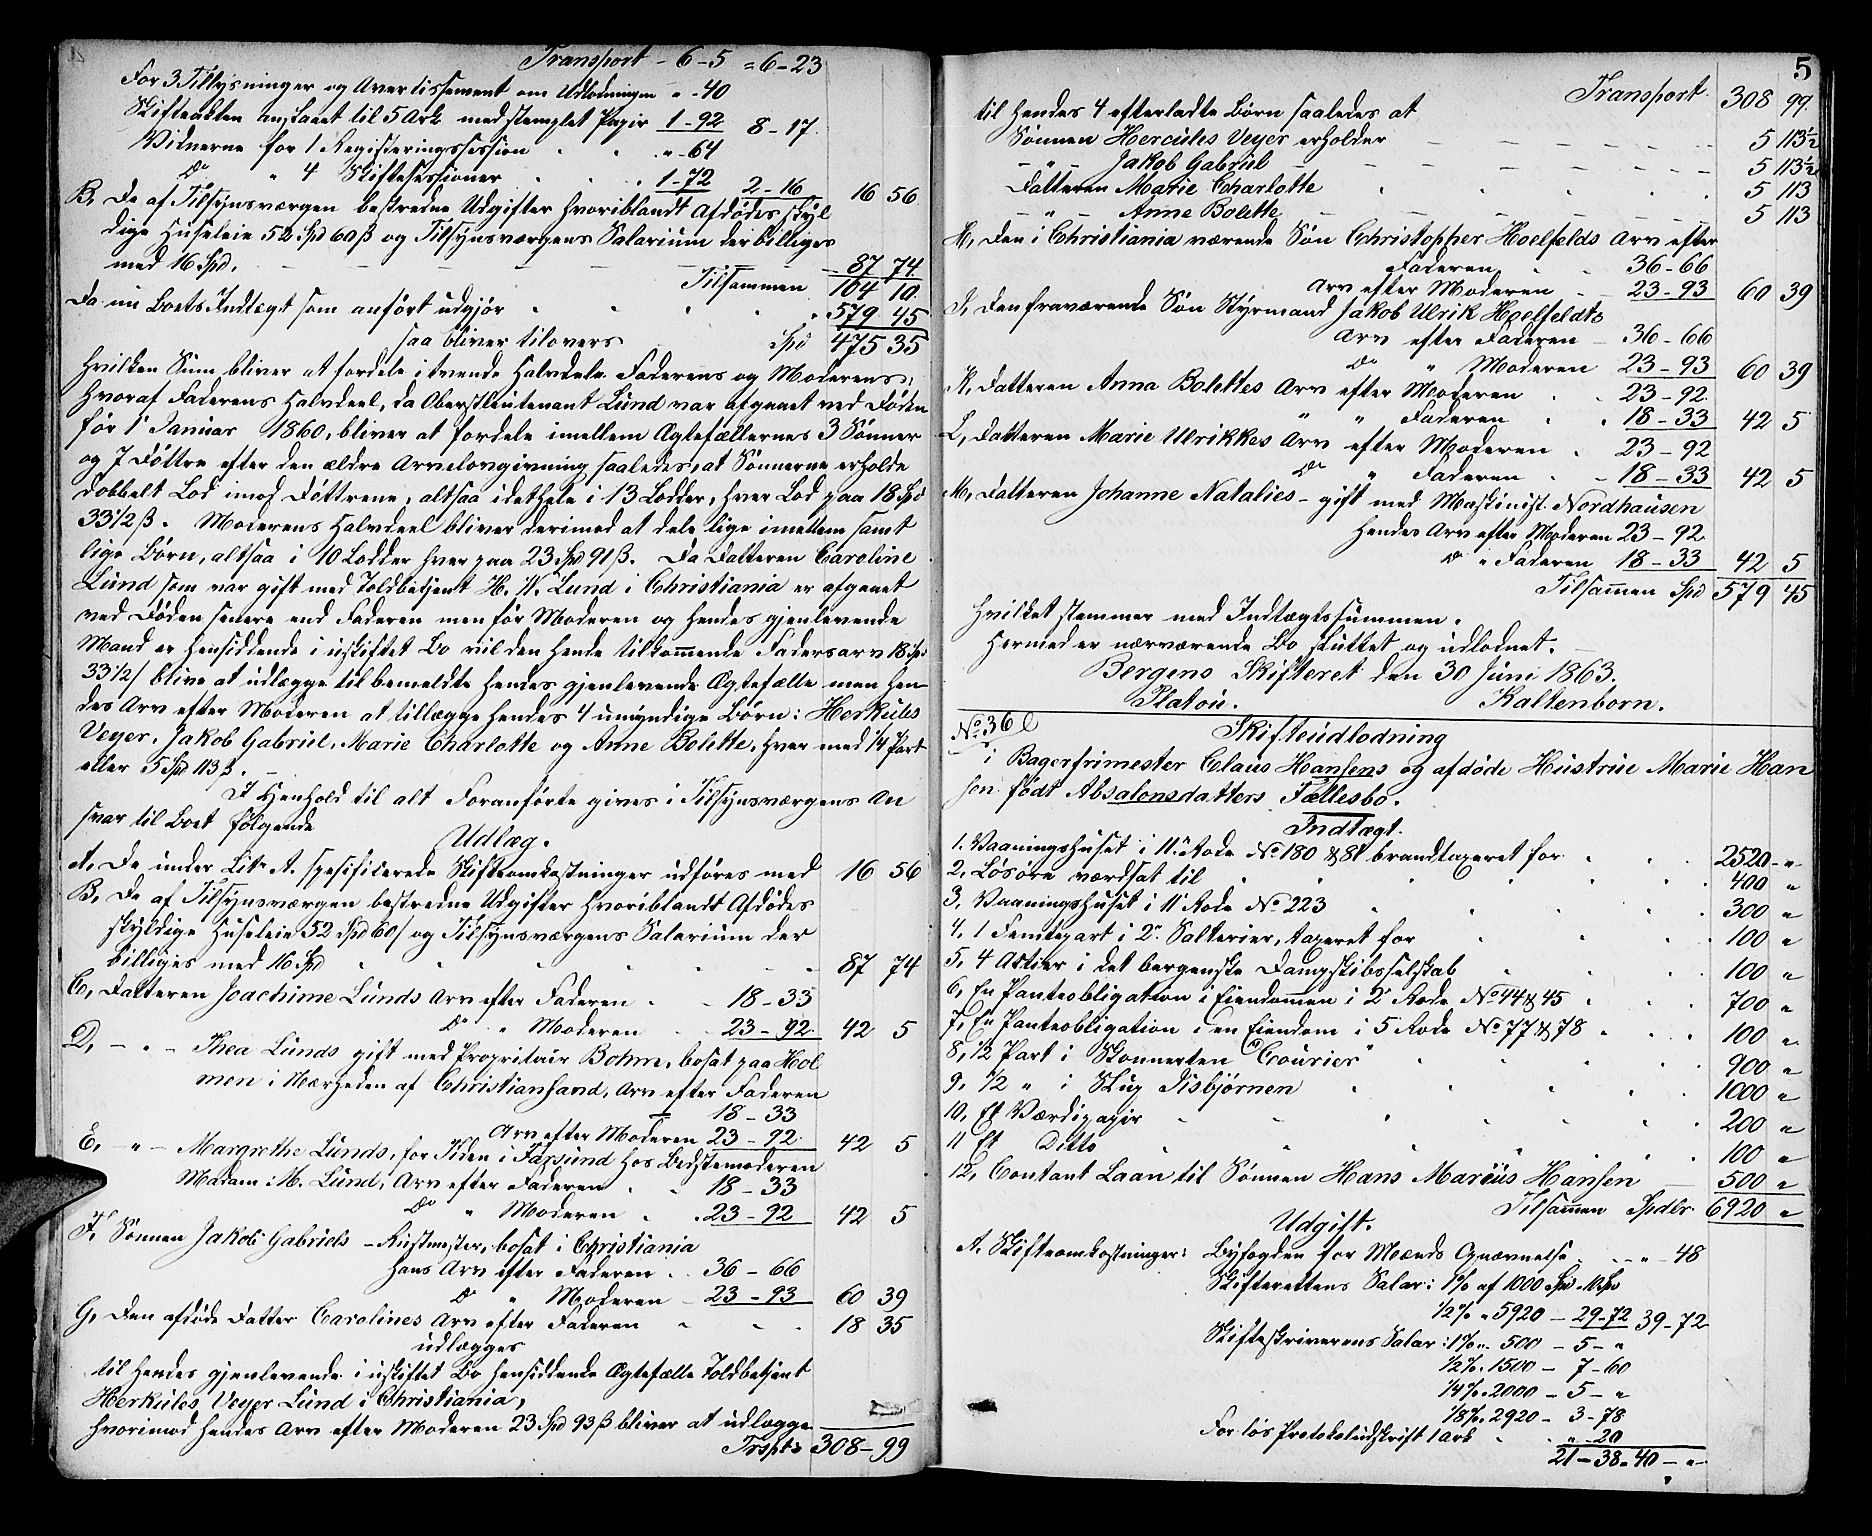 Transport - 6-5 = 6-23
For 3 Tillysninger og Avertissement om Udlodningen " - 40
Skifteakten anslaaet til 5 Ark med stemplet Papir 1-92 8-17.
Vidnerne for 1 Registeringssession " - 64
Do " 4 Skiftesessioner 1-72 2-16 16 56
B, De af Tilsynsværgen bestredne Udgifter hvoriblandt Afdødes skyl
dige Huusleie 52 Spd 60 ß og Tilsynsværgens Salarium der billiges
med 16 Spd. 87 74.
Tilsammen 104 10.
Da nu Boets Indtægt som anført udgjør 579 45
saa bliver tilovers Spd 475 35
Hvilken Sum bliver at fordele i tvende Halvdele Faderens og Moderens,
hvoraf Faderens Halvdeel, da Oberstleutenant Lund var afgaaet ved Døden
før 1' Januar 1860, bliver at fordele imellem Ægtefællernes 3 Sønner
og 7 Døttre efter den ældre Arvelovgivning saaledes, at Sønnerne erholde
dobbelt Lod imod Døttrene, altsaa idethele i 13 Lodder, hver Lod paa 18 Spd
33 1/2 ß. Moderens Halvdeel bliver derimod at dele lige imellem samt
lige Børn, altsaa i 10 Lodder hver paa 23 Spd 91 ß. Da Datteren Caroline
Lund som var gift med Toldbetjent H. W. Lund i Christiania er afgaaet
ved Døden senere end Faderen men før Moderen og hendes gjenlevende
Mand er hensiddende i uskiftet Bo vil den hende tilkommende Fadersarv 18 Spd
33 1/2 ß blive at udlægge til bemeldte hendes gjenlevende Ægtefælle men hen-
des Arv efter Moderen at tillægge hendes 4 umyndige Børn: Herkules
Veyer, Jakob Gabriel, Marie Charlotte og Anne Bolette, hver med 1/4 Part
eller 5 Spd 113 ß. -
I Henhold til alt Foranførte gives i Tilsynsværgens An
svar til Boet følgende
Udlæg.
A, De under Litr A. spesificerede Skifteomkostninger udføres med 16 56
B, De af Tilsynsværgen bestredne Udgifter hvoriblandt Afdødes
skyldige Huusleie 52 Spd 60 ß og Tilsynsværgens Salarium der
billiges med 16 Spd 87 74
C, Datteren Joachime Lunds Arv efter Faderen 18-33
Do " Moderen 23-92. 42 5
D, - " - Thea Lunds gift med Propritair Bohm, bosat paa Hol
men i Nærheden af Christiansand, Arv efter Faderen
18-33
Arv efter Moderen 23-92. 42 5
E, - " - Margrethe Lunds, for Tiden i Farsund hos Bedstemoderen
Madam: M. Lund, Arv efter Faderen 18-33
Do " Moderen 23-92 42 5
F, Sønnen Jakob Gabriels - Rustmester, bosat i Christiania
hans Arv efter Faderen 36-66
Do " Moderen 23-93 60 39
G, Den afdøde Datter Carolines Arv efter Faderen 18 35
udlægges
til hendes gjenlevende i uskiftet Bo hensiddende Ægtefælle Toldbetjent
Herkules Veyer Lund i Christiania,
hvorimod hendes Arv efter Moderen 23 Spd 93 ß bliver at udlægge
Trspt: 308-99
5
Transport. 308 99.
til hendes 4 efterladte Børn saaledes at
Sønnen Hercules Veyer erholder 5 113 1/2
- " - Jakob Gabriel 5 113 1/2
Datteren Marie Charlotte 5 113
- " - Anne Bolette 5 113
H, Den i Christiania værende Søn Christopher Hoelfelds Arv efter
Faderen 36-66
Arv efter Moderen 23-93 60 39
I, Den fraværende Søn Styrmand Jakob Ulrik Hoelfeldts
Arv efter Faderen 36-66
Do " Moderen 23-93 60 39
K, Datteren Anna Bolettes Arv efter Moderen 23-92.
" " Faderen 18-33 42 5
L, Datteren Marie Ulrikkes Arv efter Moderen 23-92
Do " Faderen 18-33 42 5
M, Datteren Johanne Natalies - gift med Maskinist Nordhausen
hendes Arv efter Moderen 23-92.
Do " Faderen 18-33 42 5
Tilsammen Spd 579 45
Hvilket stemmer med Indtægtssummen.
Hermed er nærværende Bo sluttet og udlodnet.
Bergens Skifteret den 30 Juni 1863.
Platou. Kaltenborn.
No 36 l Skifteudlodning
i Bagerfrimester Claus Hansens og afdøde Hustrue Marie Han
sen født Absalonsdatters Fællesbo.
Indtægt.
1. Vaaningshuset i 11te Rode No 180 & 81 brandtaxeret for 2520 - "
2, Løsøre værdsat til 400 "
3, Vaaningshuset i 11' Rode No 223 300 "
4, 1 Femtepart i 2de Salterier, taxeret for 100 "
5, 4 Aktier i det bergenske Dampskibsselskab 100 "
6, En Panteobligation i Eiendommen i 2' Rode No 44 & 45 700 "
7, En Panteobligation i en Eiendom i 5 Rode No 77 & 78 100 "
8, 1/2 Part i Skonnerten "Courier" 900 "
9, 1/2 " i Slup Isbjørnen 1000 "
10, Et Værdipapir 200 "
11 Et Ditto 100 "
12, Contant Laan til Sønnen Hans Marius Hansen 500 "
Tilsammen Spdlr. 6920 "
Udgift.
A. Skifteomkostninger: Byfogden for Mænds Opnævnelse " - 48
Skifterettens Salar: 1% af 1000 Spd - 10 Spd
1/2% " 5920 - 29-72 39-72
Skifteskriverens Salar: 1% " 500 - 5 - "
1/2% " 1500 - 7-60
1/4% " 2000 - 5 - "
1/8% " 2920 - 3-78
For løs Protokoludskrift 1 Ark " - 20
21-38. 40 - "